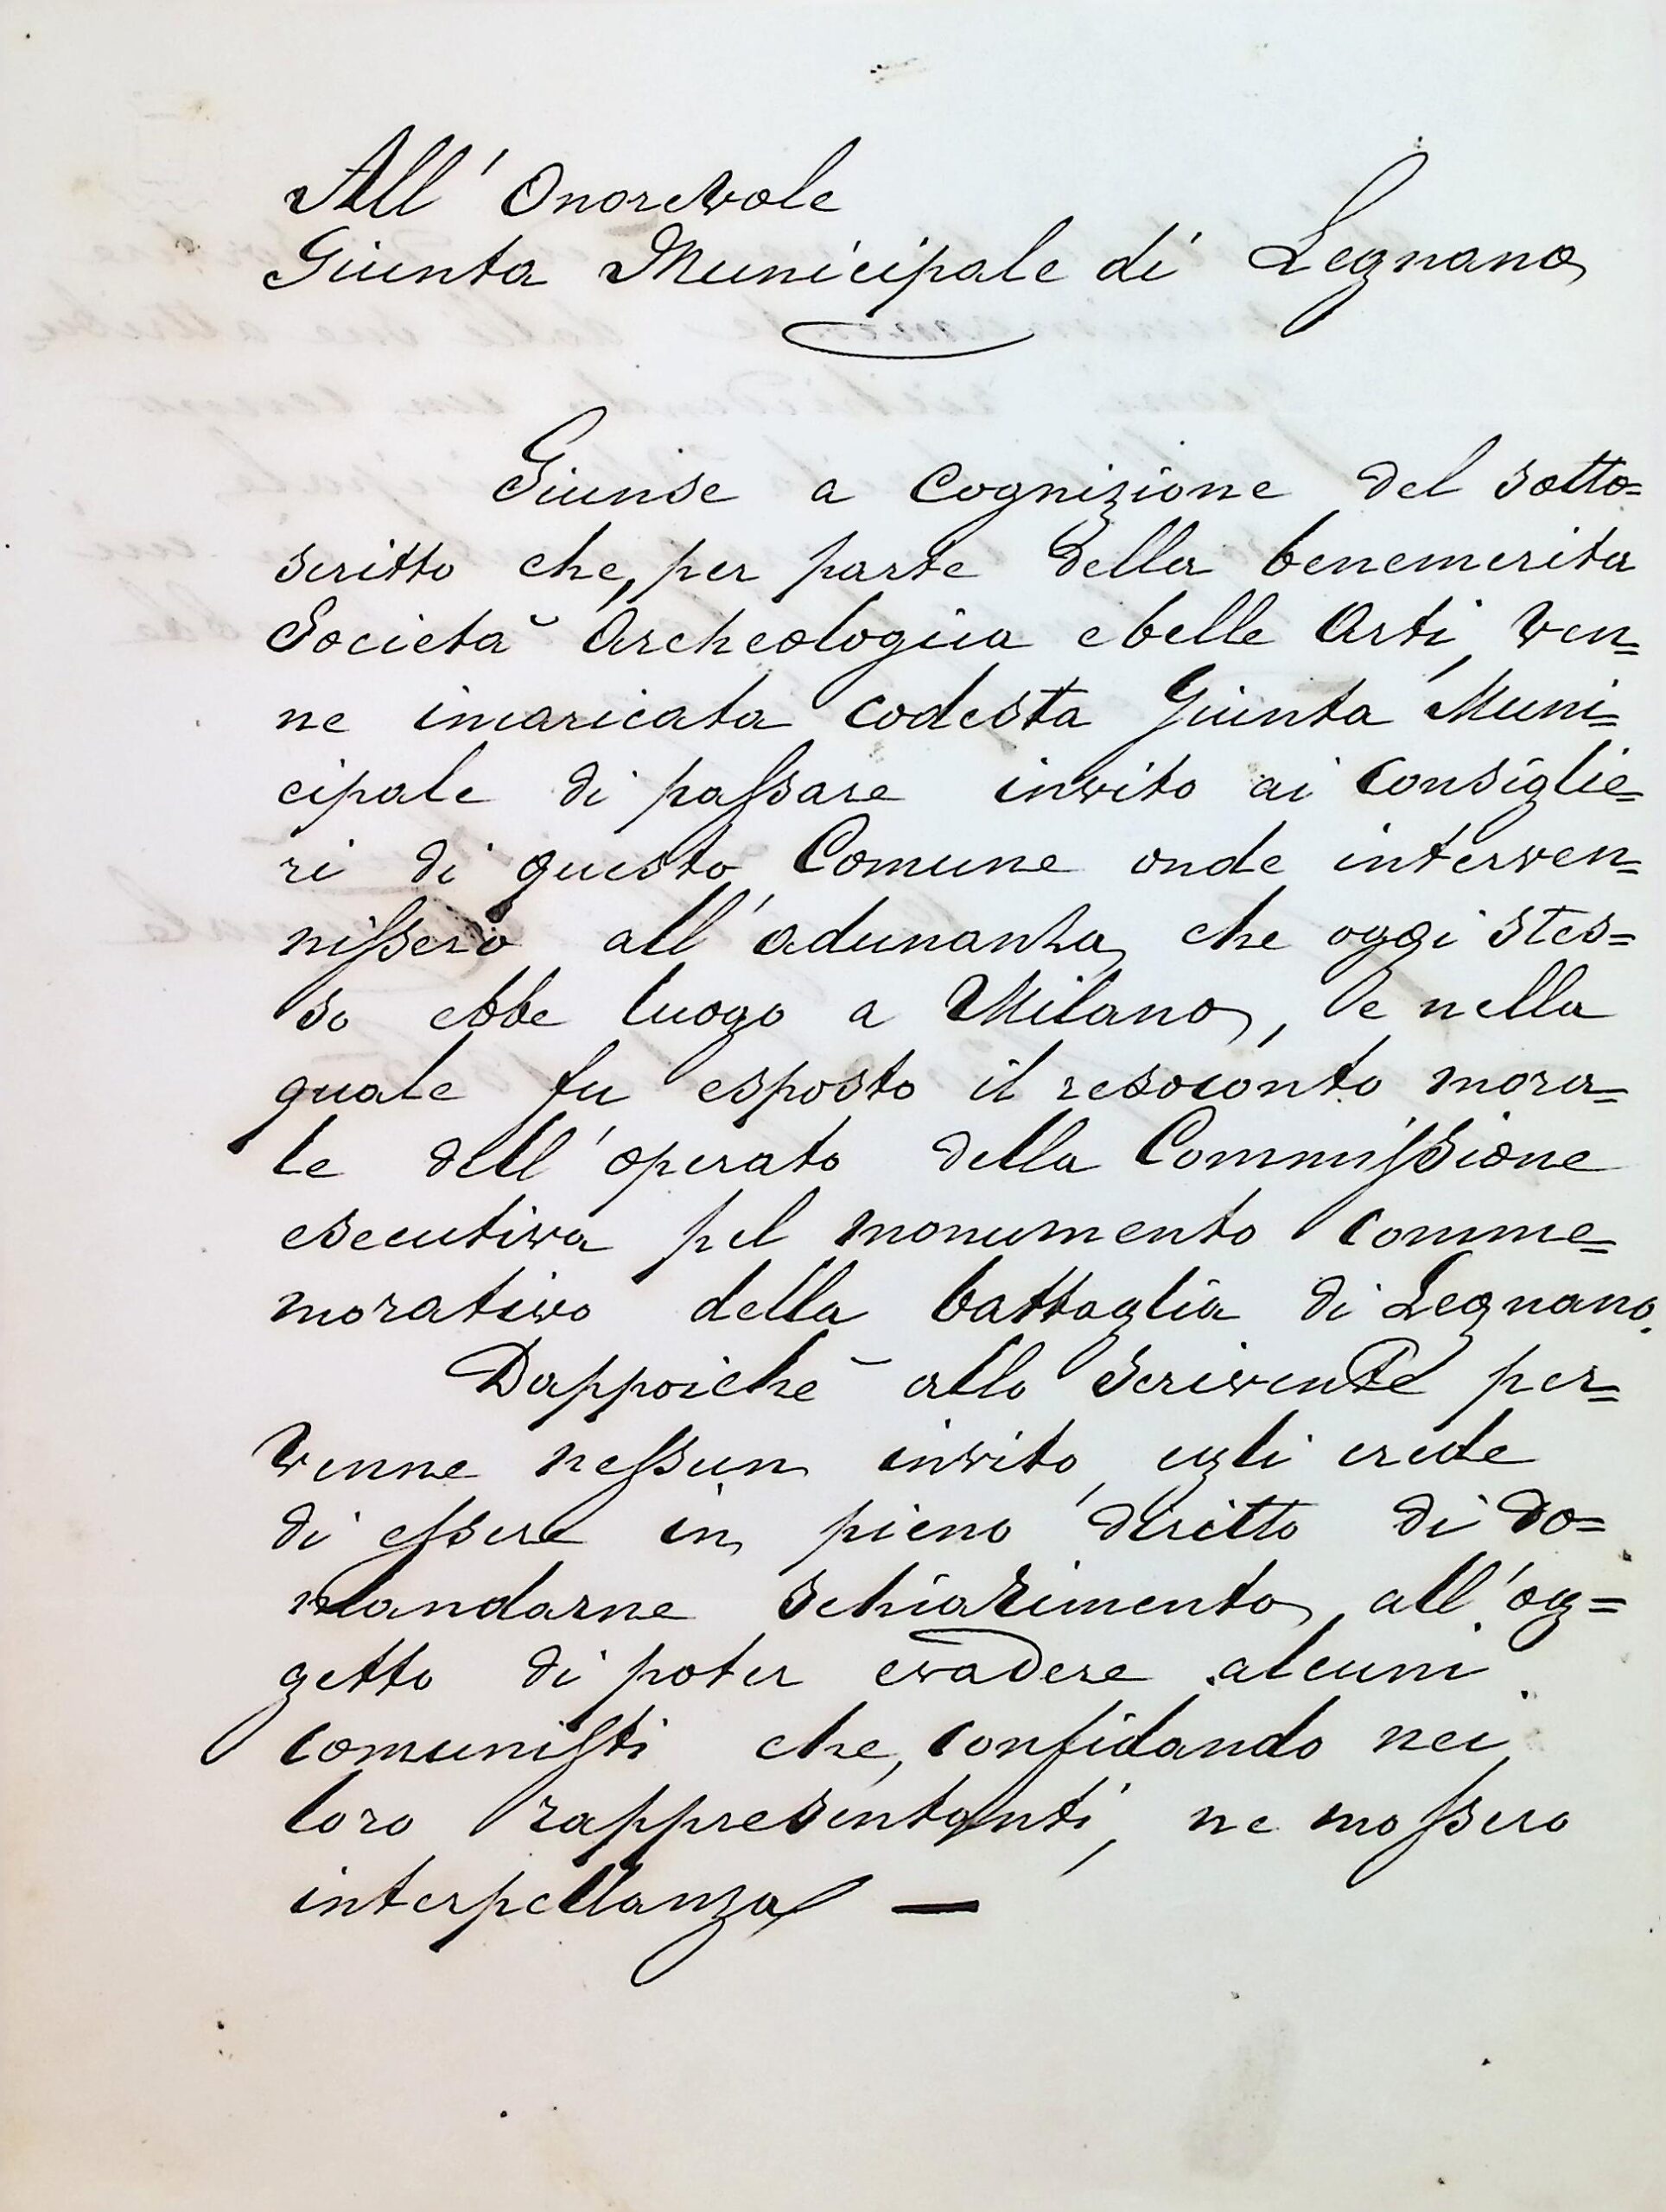 All'Onorevole
Giunta Municipale di Legnano
Giunse a cognizione del sotto=
scritto che, per parte della benemerita
Società Archeologica e belle Arti, ven=
ne incaricata codesta Giunta Muni=
cipale di passare invito ai Consiglie=
ri di questo Comune onde interven=
nissero all'adunanza che oggi stes=
so ebbe luogo a Milano, e nella
quale fu esposto il resoconto mora=
le dell'operato della Commissione
esecutiva pel monumento comme=
morativo della battaglia di Legnano.
Dappoichè allo scrivente per=
venne nessun invito, egli crede
di essere in pieno diritto di do=
mandarne schiarimento, all'og=
getto di poter evadere alcuni
comunisti che, confidando nei
loro rappresentanti, ne mossero
interpellanza —